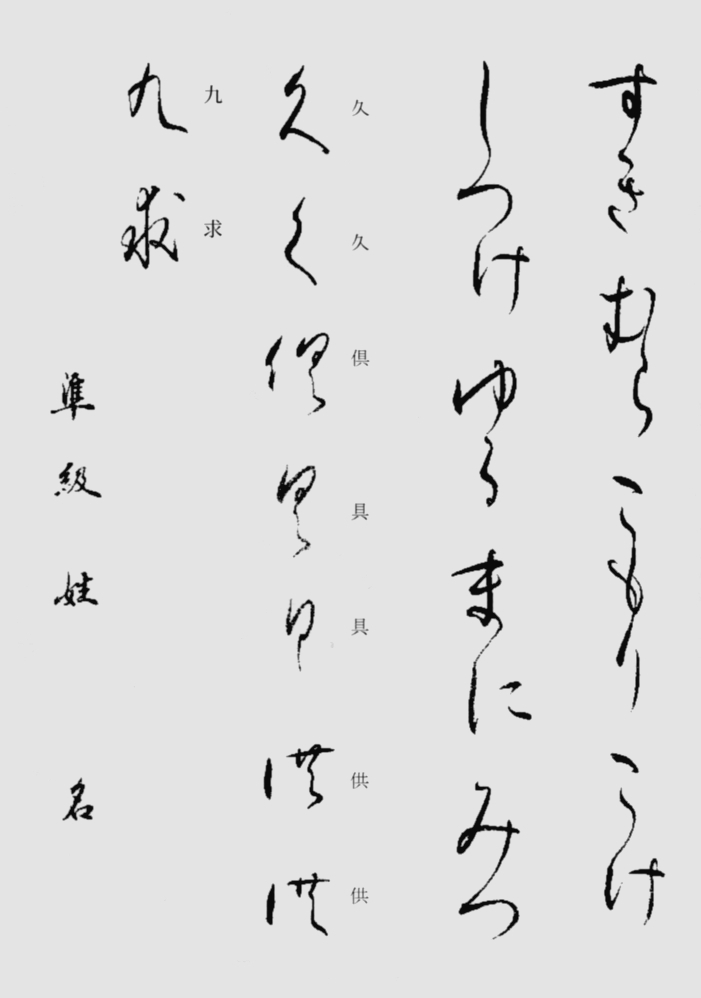 すき むら こもり こけ
しつけ ゆる まに みつ
久 久 倶 具 具 供 供
久 く 倶 具 具 供 供
九 求
九 求
準 級 姓 名